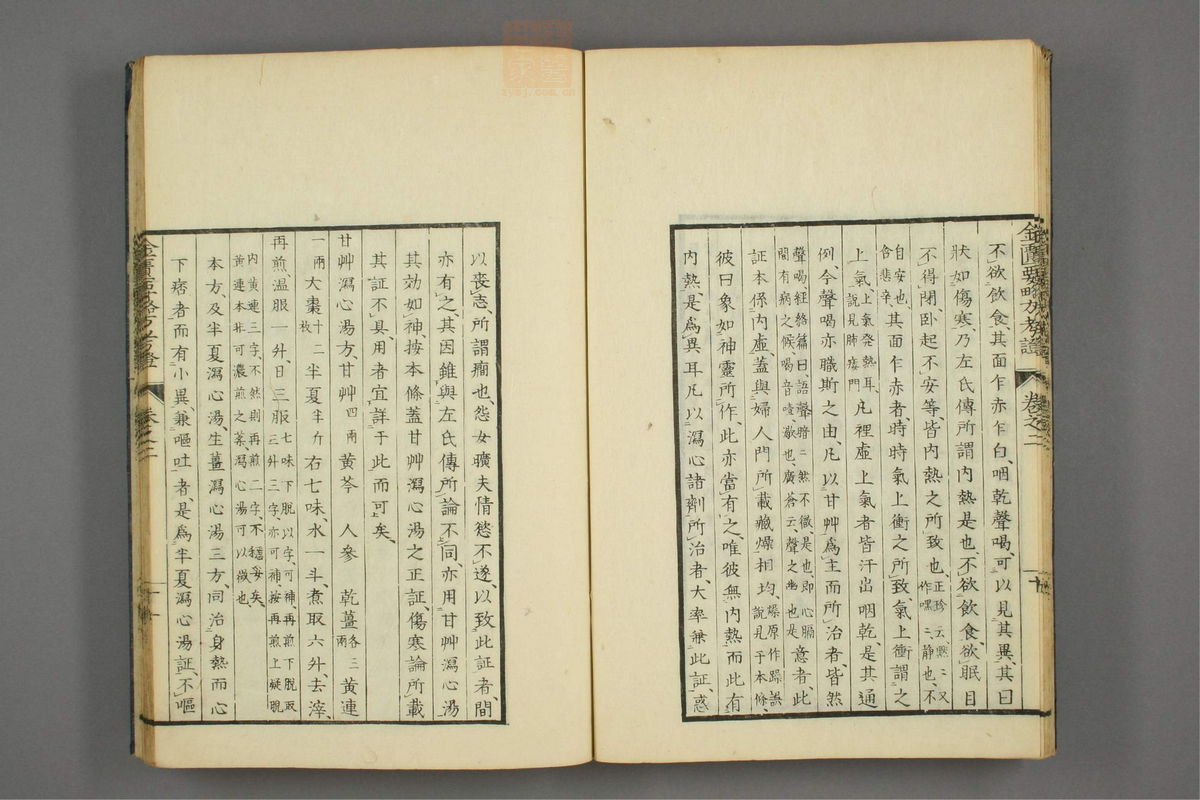 不欲飲食、其面乍赤乍白、咽乾聲喝、可以見其異、其曰
狀如傷寒、乃左氏傳所謂内熱是也、不欲飲食、欲眠目
不得閉、臥起不安等、皆内熱之所致也、正珍云、默默又作嘿嘿、靜也、不
自安也、含悲辛、其面乍赤者、時時氣上衝之所致、氣上衝謂之
上氣、上氣發熱耳、説見肺痿門、凡裡虛上氣者、皆汗出咽乾、是其通
例、今聲喝亦職斯之由、凡以甘艸爲主、而所治者、皆然
聲喝、經絡篇曰、語聲暗暗然不徹是也、即心膈間有病之候、喝音噎、歇也、廣蒼云、聲之幽也、是意者、此
証本係内虛、蓋與婦人門所載癥燥相均、燥原作躁誤説見于本條、
彼曰象如神靈所作、此亦當有之、唯彼無内熱、而此有
内熱、是爲異耳、凡以瀉心諸劑所治者、大率兼此証、惑
金匱要略方考證 卷之二 十
以喪志、所謂癇也、怨女曠夫、情慾不遂、以致此証者、間
亦有之、其因雖與左氏傳所論不同、亦用甘艸瀉心湯
其効如神、按本條蓋甘艸瀉心湯之正証、傷寒論所載
其証不具、用者宜詳于此而可矣、
甘艸瀉心湯方、甘艸四兩 黄芩 人參 乾薑各三兩 黄連
一兩 大棗十二枚 半夏半斤 右七味、水一斗、煮取六升、去滓、
再煎、温服一升、日三服、七味下脱以字、可補、再煎下脱取三升三字、亦可補、按再煎上疑脱
内黄連三字、不然則再煎二字、不穩妥矣、黄連本非可濃煎之藥、瀉心湯可以徴也、
本方、及半夏瀉心湯、生薑瀉心湯三方、同治身熱而心
下痞者、而有小異、兼嘔吐者、是爲半夏瀉心湯証、不嘔
金匱要略方考證 卷之二